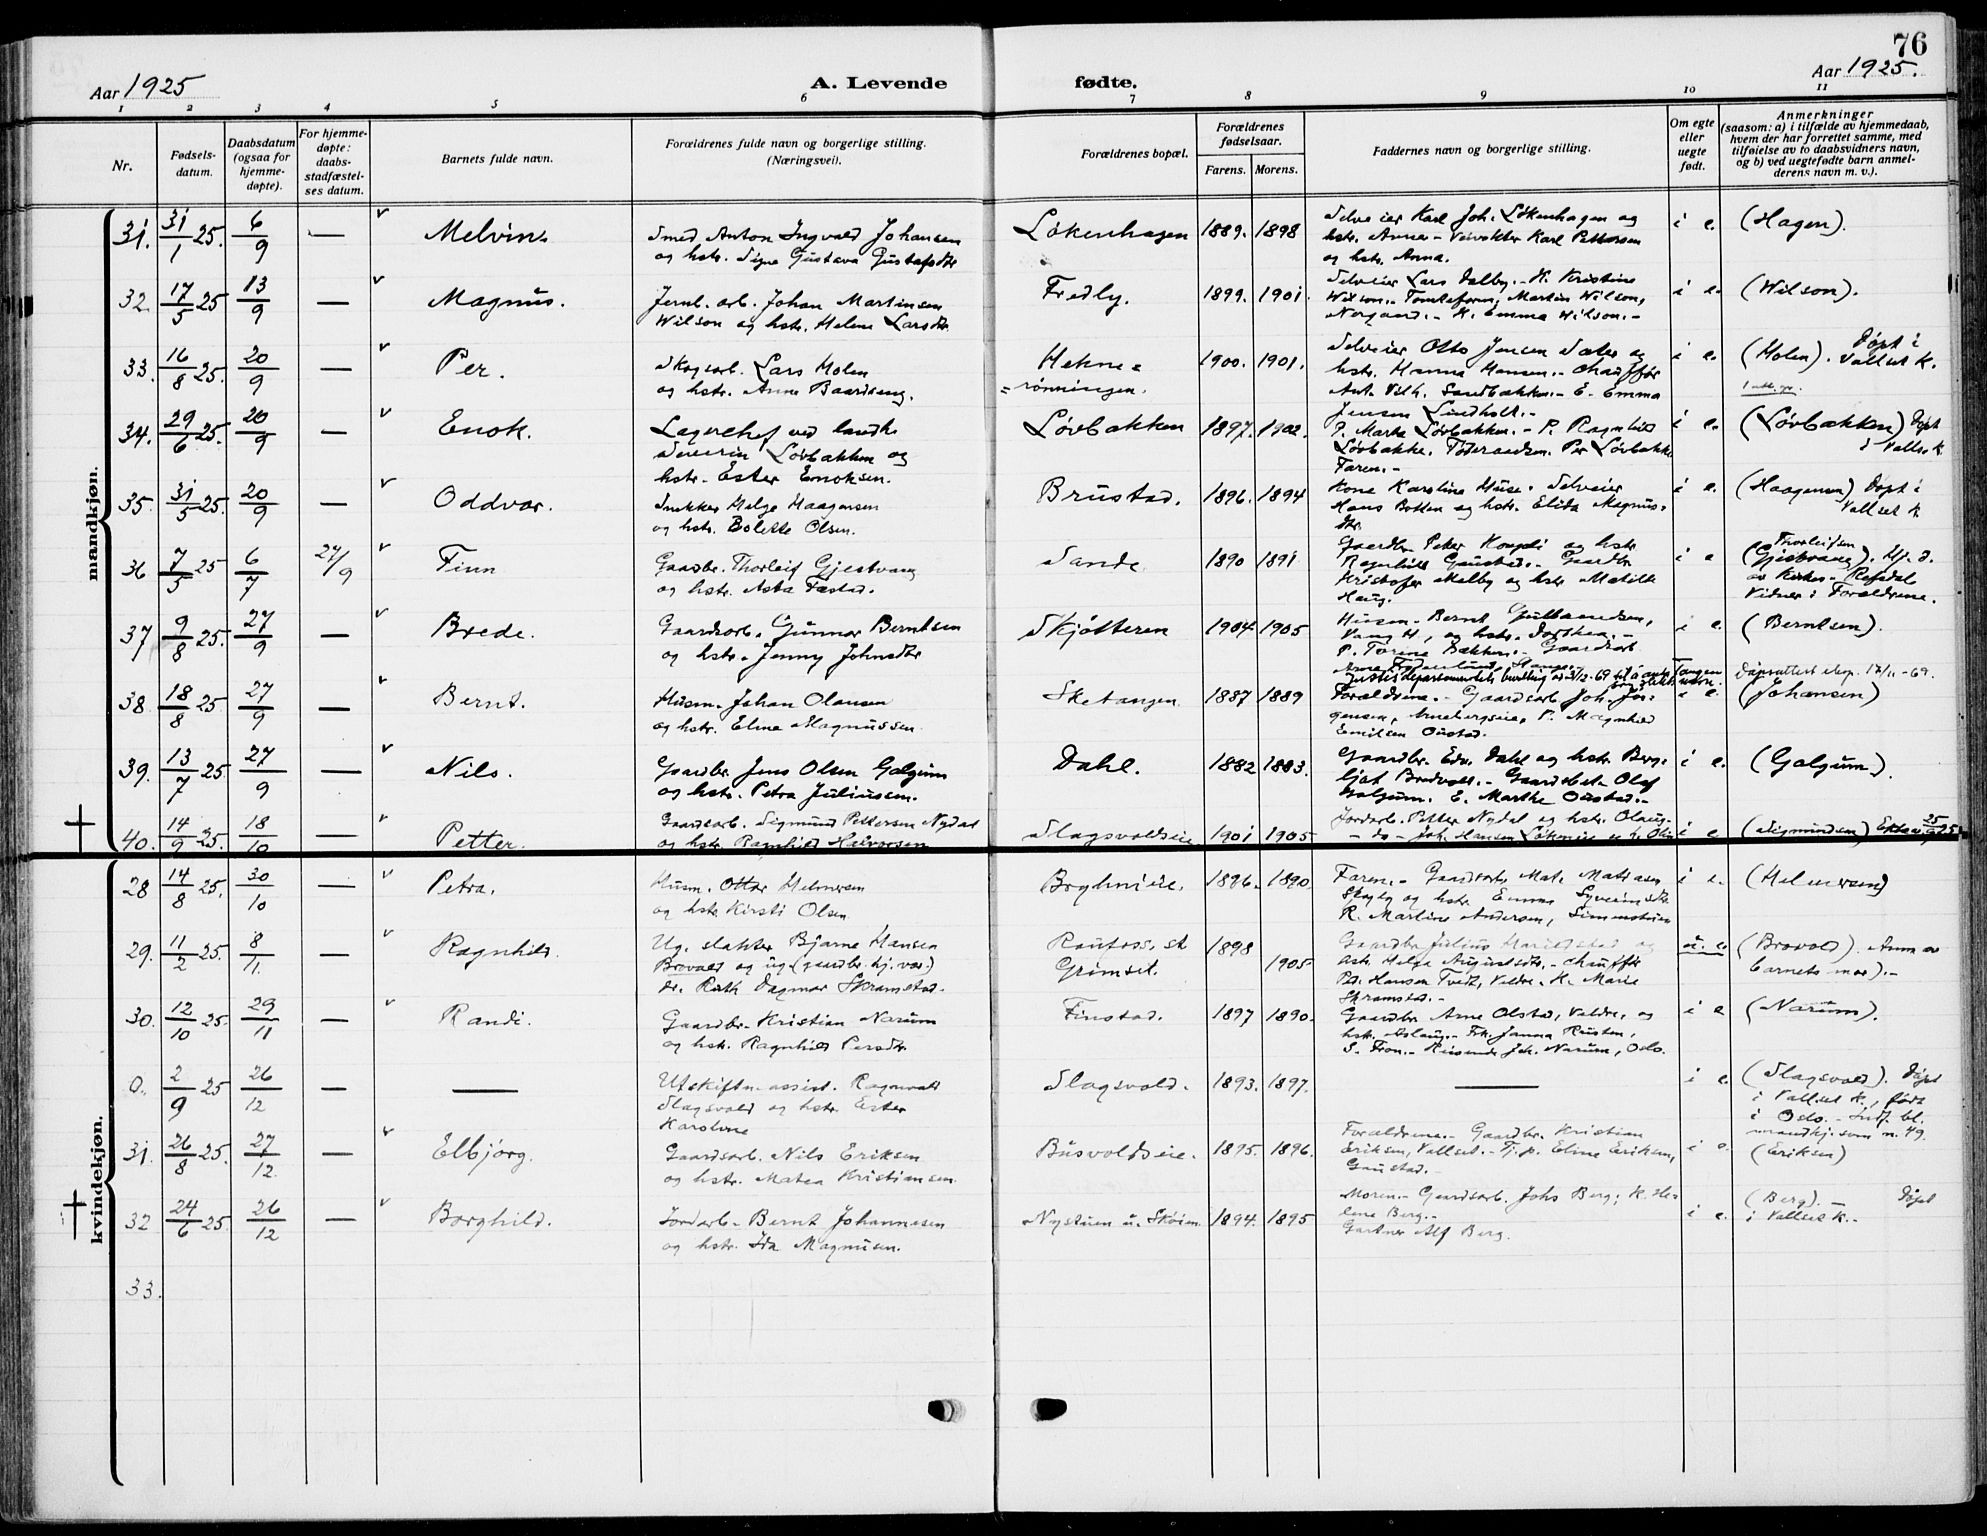 76
Aar 1925
A. Levende
fødte.
Aar 1925.
1 2 3 4 5 6 7 8 9 10 11
Nr.
Fødsels-
datum.
Daabsdatum
(ogsaa for
hjemme-
døpte).
For hjemme-
døpte:
daabs-
stadfæstel-
ses datum.
Barnets fulde navn.
Forældrenes fulde navn og borgerlige stilling.
(Næringsvei).
Forældrenes bopæl.
Forældrenes
fødselsaar.
Farens. Morens.
Faddernes navn og borgerlige stilling.
Om egte
eller
uegte
født.
Anmerkninger
(saasom: a) i tilfælde av hjemmedaab,
hvem der har forrettet samme, med
tilføielse av to daabsvidners navn,
og b) ved uegtefødte barn anmel-
derens navn m. v.).
mandkjøn.
31. 31/1 25. 6/9 — Melvin.
Smed Anton Ingvald Johansen
og hstr. Signe Gustava Gustafsdtr
Løkenhagen 1889. 1898
Selveier Karl Joh. Løkenhagen og
hstr. Anna – Veivokter Karl Pettersen
og hstr. Anna.
i e. (Hagen).
32. 17/5 25 13/9 — Magnus.
Jernb. arb. Johan Martinsen
Wilson og hstr. Helene Larsdtr.
Fredly. 1899. 1901.
Selveier Lars Dalby. – K. Kristine
Wilson. – Tomteform. Martin Wilson,
Norgaard. – K. Emma Wilson. –
i e. (Wilson).
33. 16/8 25. 20/9 — Per.
Skogsarb. Lars Molen
og hstr. Anne Baardseng.
Hekne=
=rønningen. 1900. 1901.
Selveier Otto Jensen Sæter og
hstr. Hanna Hansen. – Chauffør
Ant. Vilh. Sandbakken. – E. Emma
Jensen Lindholt. –
i e. (Molen). Døpt i
Vallset K.
34. 29/6 25. 20/9 — Enok.
Lagerchef ved landh.
Severin Løvbakken og
hstr. Ester Enoksen.
Løvbakken 1897. 1902.
P. Marta Løvbakken. – P. Ragnhild
Løvbakke. Per Løvbakke
Faren. –
i e. (Løvbakken) Døpt
i Vallset K
35. 31/5 25. 20/9 — Oddvar.
Snekker Helge Haagensen
og hstr. Bolette Olsen.
Brustad. 1896. 1894
Kone Karoline Huse. Selveier
Hans Botten og hstr. Elida Magnus-
dtr.
i e. (Haagensen) Døpt i
Vallset K.
36 7/5 25 6/7 27/9 Finn
Gaardbr. Thorleif Gjestvang
og hstr. Asta Fæstad.
Sande 1890 1891
Gaardbr. Peter og hstr
Ragnhild Gaustad. – Gaardbr
Kristofer Melby og hstr Matilde
Haug.
i e Thorleifsen
(Gjestvang). Hj. d.
av Kirkes. – Refsdal
Vidner: Forældrene.
37 9/8 25. 27/9 — Brede.
Gaardsarb. Gunnar Berntsen
og hstr. Jenny Johnsdtr
Skjøtteren 1904. 1905
Husm. Bernt Gulbrandsen,
Vang H, og hstr. Dorthea. –
P. Torine Bækken. – Gaardsarb.
i e. (Berntsen).
38. 18/8 25. 27/9 — Bernt.
Husm. Johan Olausen
og hstr. Eline Magnussen.
Sketangen 1887 1889
Forældrene. – Gaardsarb Joh. Jør-
gensen, Arnebergseie, P. Magnhild
Emilsen Oustad.
i e. Dåpsattest eksp. 17/11-69.
(Johansen)
39. 13/7 25. 27/9 — Nils.
Gaardbr. Jens Olsen Galgum
og hstr. Petra Juliussen.
Dahl. 1882 1883.
Gaardbr. Edv. Dahl og hstr. Berg-
ljot Bredvold. – Gaardbest. Olaf
Galgum. E. Marthe Oustad. –
i e. (Galgum).
40. 14/9 25. 18/10 — Petter.
Gaardsarb. Sigmund Pettersen Nydal
og hstr. Ragnhild Halvorsen
Slagsvoldseie 1901 1905
Jordarb. Petter Nydal og hstr. Olaug
– do – Joh. Hansen
i e (Sigmundsen)
kvindekjøn.
28 14/8 25. 30/10 — Petra.
Husm. Ottar Helmersen
og hstr. Kirsti Olsen.
1896. 1890.
Faren. – Gaardsarb. Mat. Matiasen
Skogly og hstr. Emma Syverinsdtr
R. Martine Andersen, Simenstuen
i e. (Helmersen)
29. 11/2 25. 8/11. — Ragnhild.
Ug. slakter Bjarne Hansen
Brovold og ug. (gaardbr. hj. vær.)
dr. Ruth Dagmar Skramstad.
Raufoss. st
Grimset. 1898 1905.
Gaardbr. Julius Mariedstad og
hstr. Helga Augustsdtr. – Chauffør
Ped. Hansen Tvedt, Veldre. – K. Marie
Skramstad. –
u. e. (Brovold). Anm. av
barnets mor). –
30. 12/10 25. 29/11 — Randi.
Gaardbr. Kristian Narum
og hstr. Ragnhild Persdtr.
Finstad. 1897 1890.
Gaardbr. Arne Olstad, Veldre, og
hstr. Aslaug. – Frk. Janna Rusten,
S. Fron. – Reisende Joh. Narum, Oslo.
i e (Narum).
0. 2/9 25 26/12 — —
Utskiftn. assist. Ragnvald
Slagsvold og hstr. Ester
Karoline
Slagsvold. 1893. 1897. —
i e. (Slagsvold). Døpt
i Vallset K., født
i Oslo. – Indf. bl.
mandkj. som n. 49.
31. 26/8 25. 27/12. — Elbjørg.
Gaardsarb. Nils Eriksen
og hstr. Matea Kristiansen.
Busvoldseie. 1895. 1896.
Forældrene. – Gaardbr. Kristian
Eriksen, Vallset. – Tj. p. Eline Eriksen,
Gaustad. –
i e. (Eriksen)
32 24/6 25. 26/12 — Borghild.
Jordarb. Bernt Johannesen
og hstr. Ida Magnusen.
Nystuen u. Skøien 1894. 1895
Moren. – Gaardsarb. Johs Berg; K. He-
lene Berg. –
Gartner Alf Berg.
i e. (Berg). – Døpt
i Vallset K. –
33.